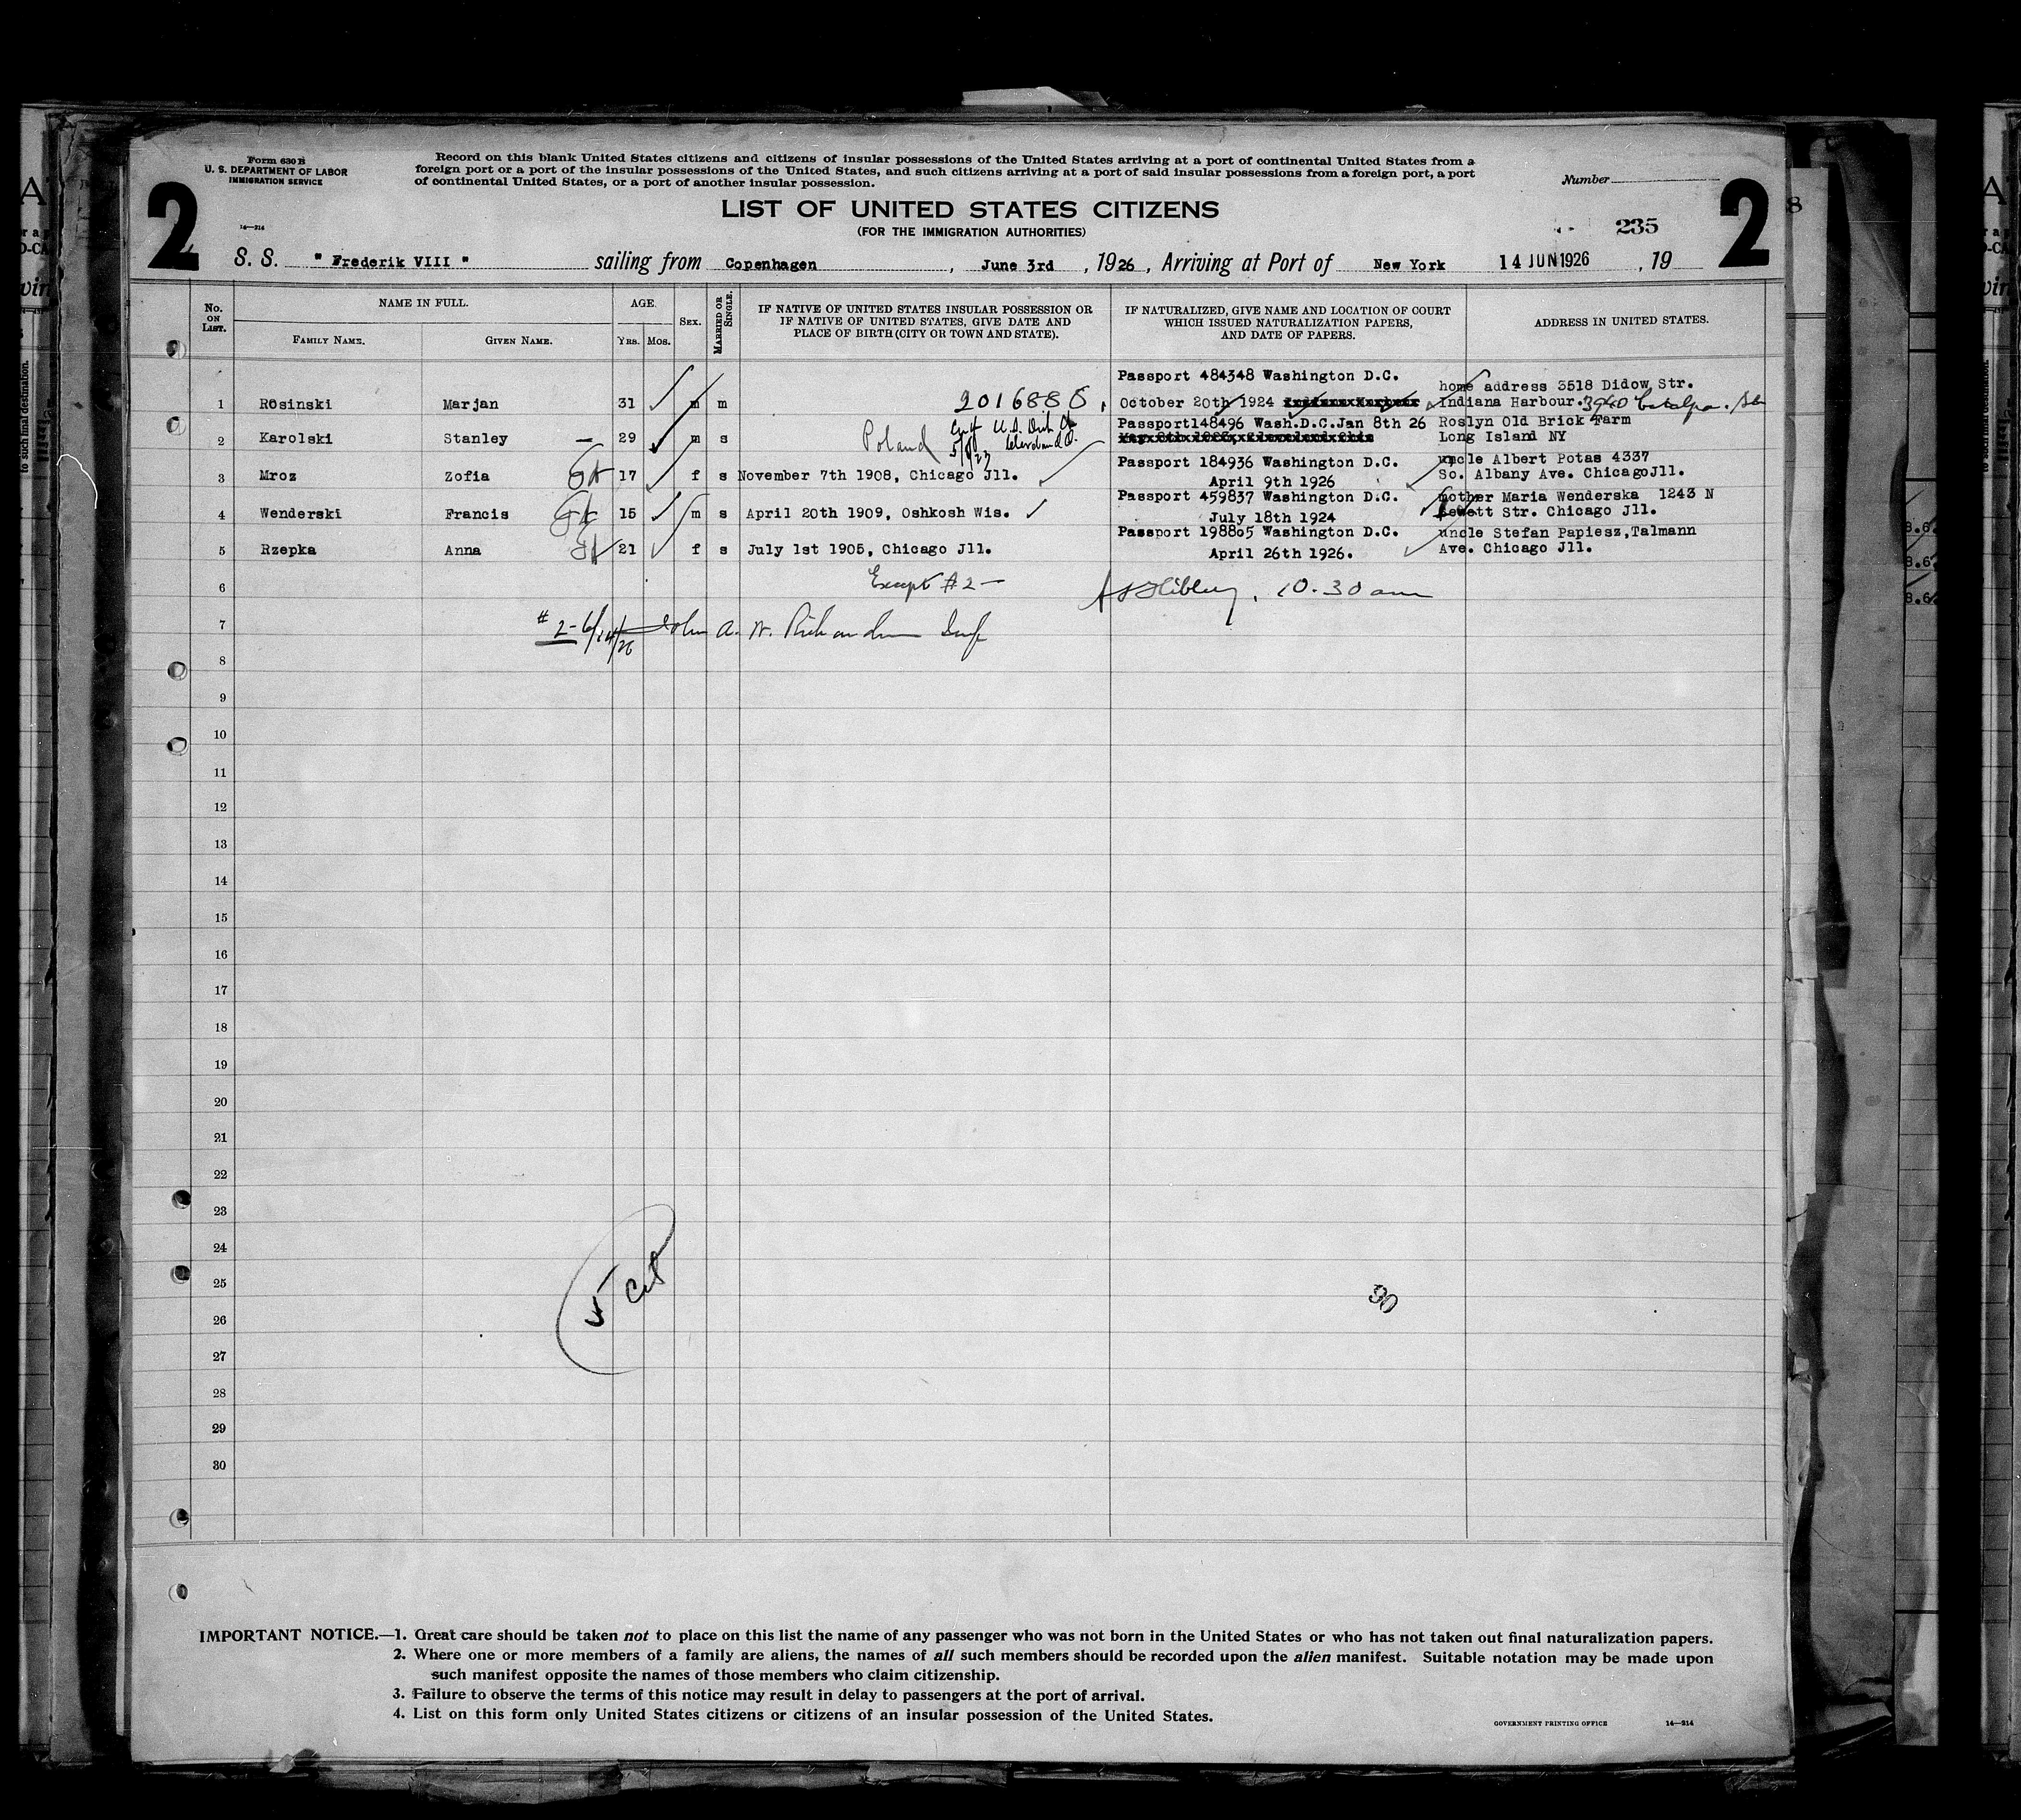 Form 630 B
U. S. DEPARTMENT OF LABOR
IMMIGRATION SERVICE
Record on this blank United States citizens and citizens of insular possessions of the United States arriving at a port of continental United States from a
foreign port or a port of the insular possessions of the United States, and such citizens arriving at a port of said insular possessions from a foreign port, a port
of continental United States, or a port of another insular possession.
Number
2
2
LIST OF UNITED STATES CITIZENS
(FOR THE IMMIGRATION AUTHORITIES)
14—214
235
S. S. " Frederik VIII " sailing from Copenhagen , June 3rd , 1926 , Arriving at Port of New York 14 JUN 1926 , 19
No. ON LIST.
NAME IN FULL.
FAMILY NAME.
GIVEN NAME.
AGE.
YRS. MOS.
SEX.
MARRIED OR SINGLE.
IF NATIVE OF UNITED STATES INSULAR POSSESSION OR
IF NATIVE OF UNITED STATES, GIVE DATE AND
PLACE OF BIRTH (CITY OR TOWN AND STATE).
IF NATURALIZED, GIVE NAME AND LOCATION OF COURT
WHICH ISSUED NATURALIZATION PAPERS,
AND DATE OF PAPERS.
ADDRESS IN UNITED STATES.
Passport 484348 Washington D.C.
home address 3518 Didow Str.
1 Rosinski Marjan 31 m m 2016888 October 20th 1924 Indiana Harbour. 3940 Catalpa.
Passport148496 Wash.D.C.Jan 8th 26 Roslyn Old Brick Farm
2 Karolski Stanley 29 m s Poland Long Island NY
Cleveland O.
5/8/23
Passport 184936 Washington D.C. uncle Albert Potas 4337
3 Mroz Zofia 17 f s November 7th 1908, Chicago Jll. April 9th 1926 So. Albany Ave. ChicagoJll.
Passport 459837 Washington D.C. mother Maria Wenderska 1243 N
4 Wenderski Francis 15 m s April 20th 1909, Oshkosh Wis. July 18th 1924 Str. Chicago Jll.
Passport 198805 Washington D.C. uncle Stefan Papiesz,Talmann
5 Rzepka Anna 21 f s July 1st 1905, Chicago Jll. April 26th 1926. Ave. Chicago Jll.
6 Except #2 — 10.30 am
7 # 2 - 6/14/26 John A. W. Richardson Insp
8
9
10
11
12
13
14
15
16
17
18
19
20
21
22
23
24
25
26
27
28
29
30
5 Cit
90
IMPORTANT NOTICE.—1. Great care should be taken not to place on this list the name of any passenger who was not born in the United States or who has not taken out final naturalization papers.
2. Where one or more members of a family are aliens, the names of all such members should be recorded upon the alien manifest. Suitable notation may be made upon
such manifest opposite the names of those members who claim citizenship.
3. Failure to observe the terms of this notice may result in delay to passengers at the port of arrival.
4. List on this form only United States citizens or citizens of an insular possession of the United States.
GOVERNMENT PRINTING OFFICE 14—214